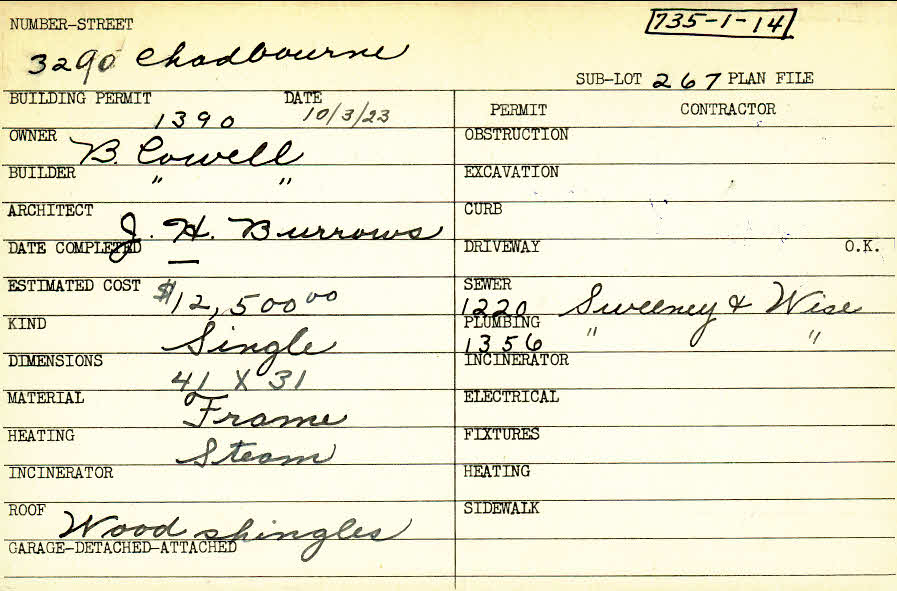 NUMBER-STREET
735-1-14
3290 Chadbourne
SUB-LOT 267 PLAN FILE
BUILDING PERMIT 1390 DATE 10/3/23
PERMIT CONTRACTOR
OWNER B. Cowell
OBSTRUCTION
BUILDER " "
EXCAVATION
ARCHITECT J. H. Burrows
CURB
DATE COMPLETED —
DRIVEWAY O.K.
ESTIMATED COST $12,500.00
SEWER 1220 Sweeney & Wise
KIND Single
PLUMBING 1356 " "
DIMENSIONS 41 X 31
INCINERATOR
MATERIAL Frame
ELECTRICAL
HEATING Steam
FIXTURES
INCINERATOR
HEATING
ROOF Wood shingles
SIDEWALK
GARAGE-DETACHED-ATTACHED